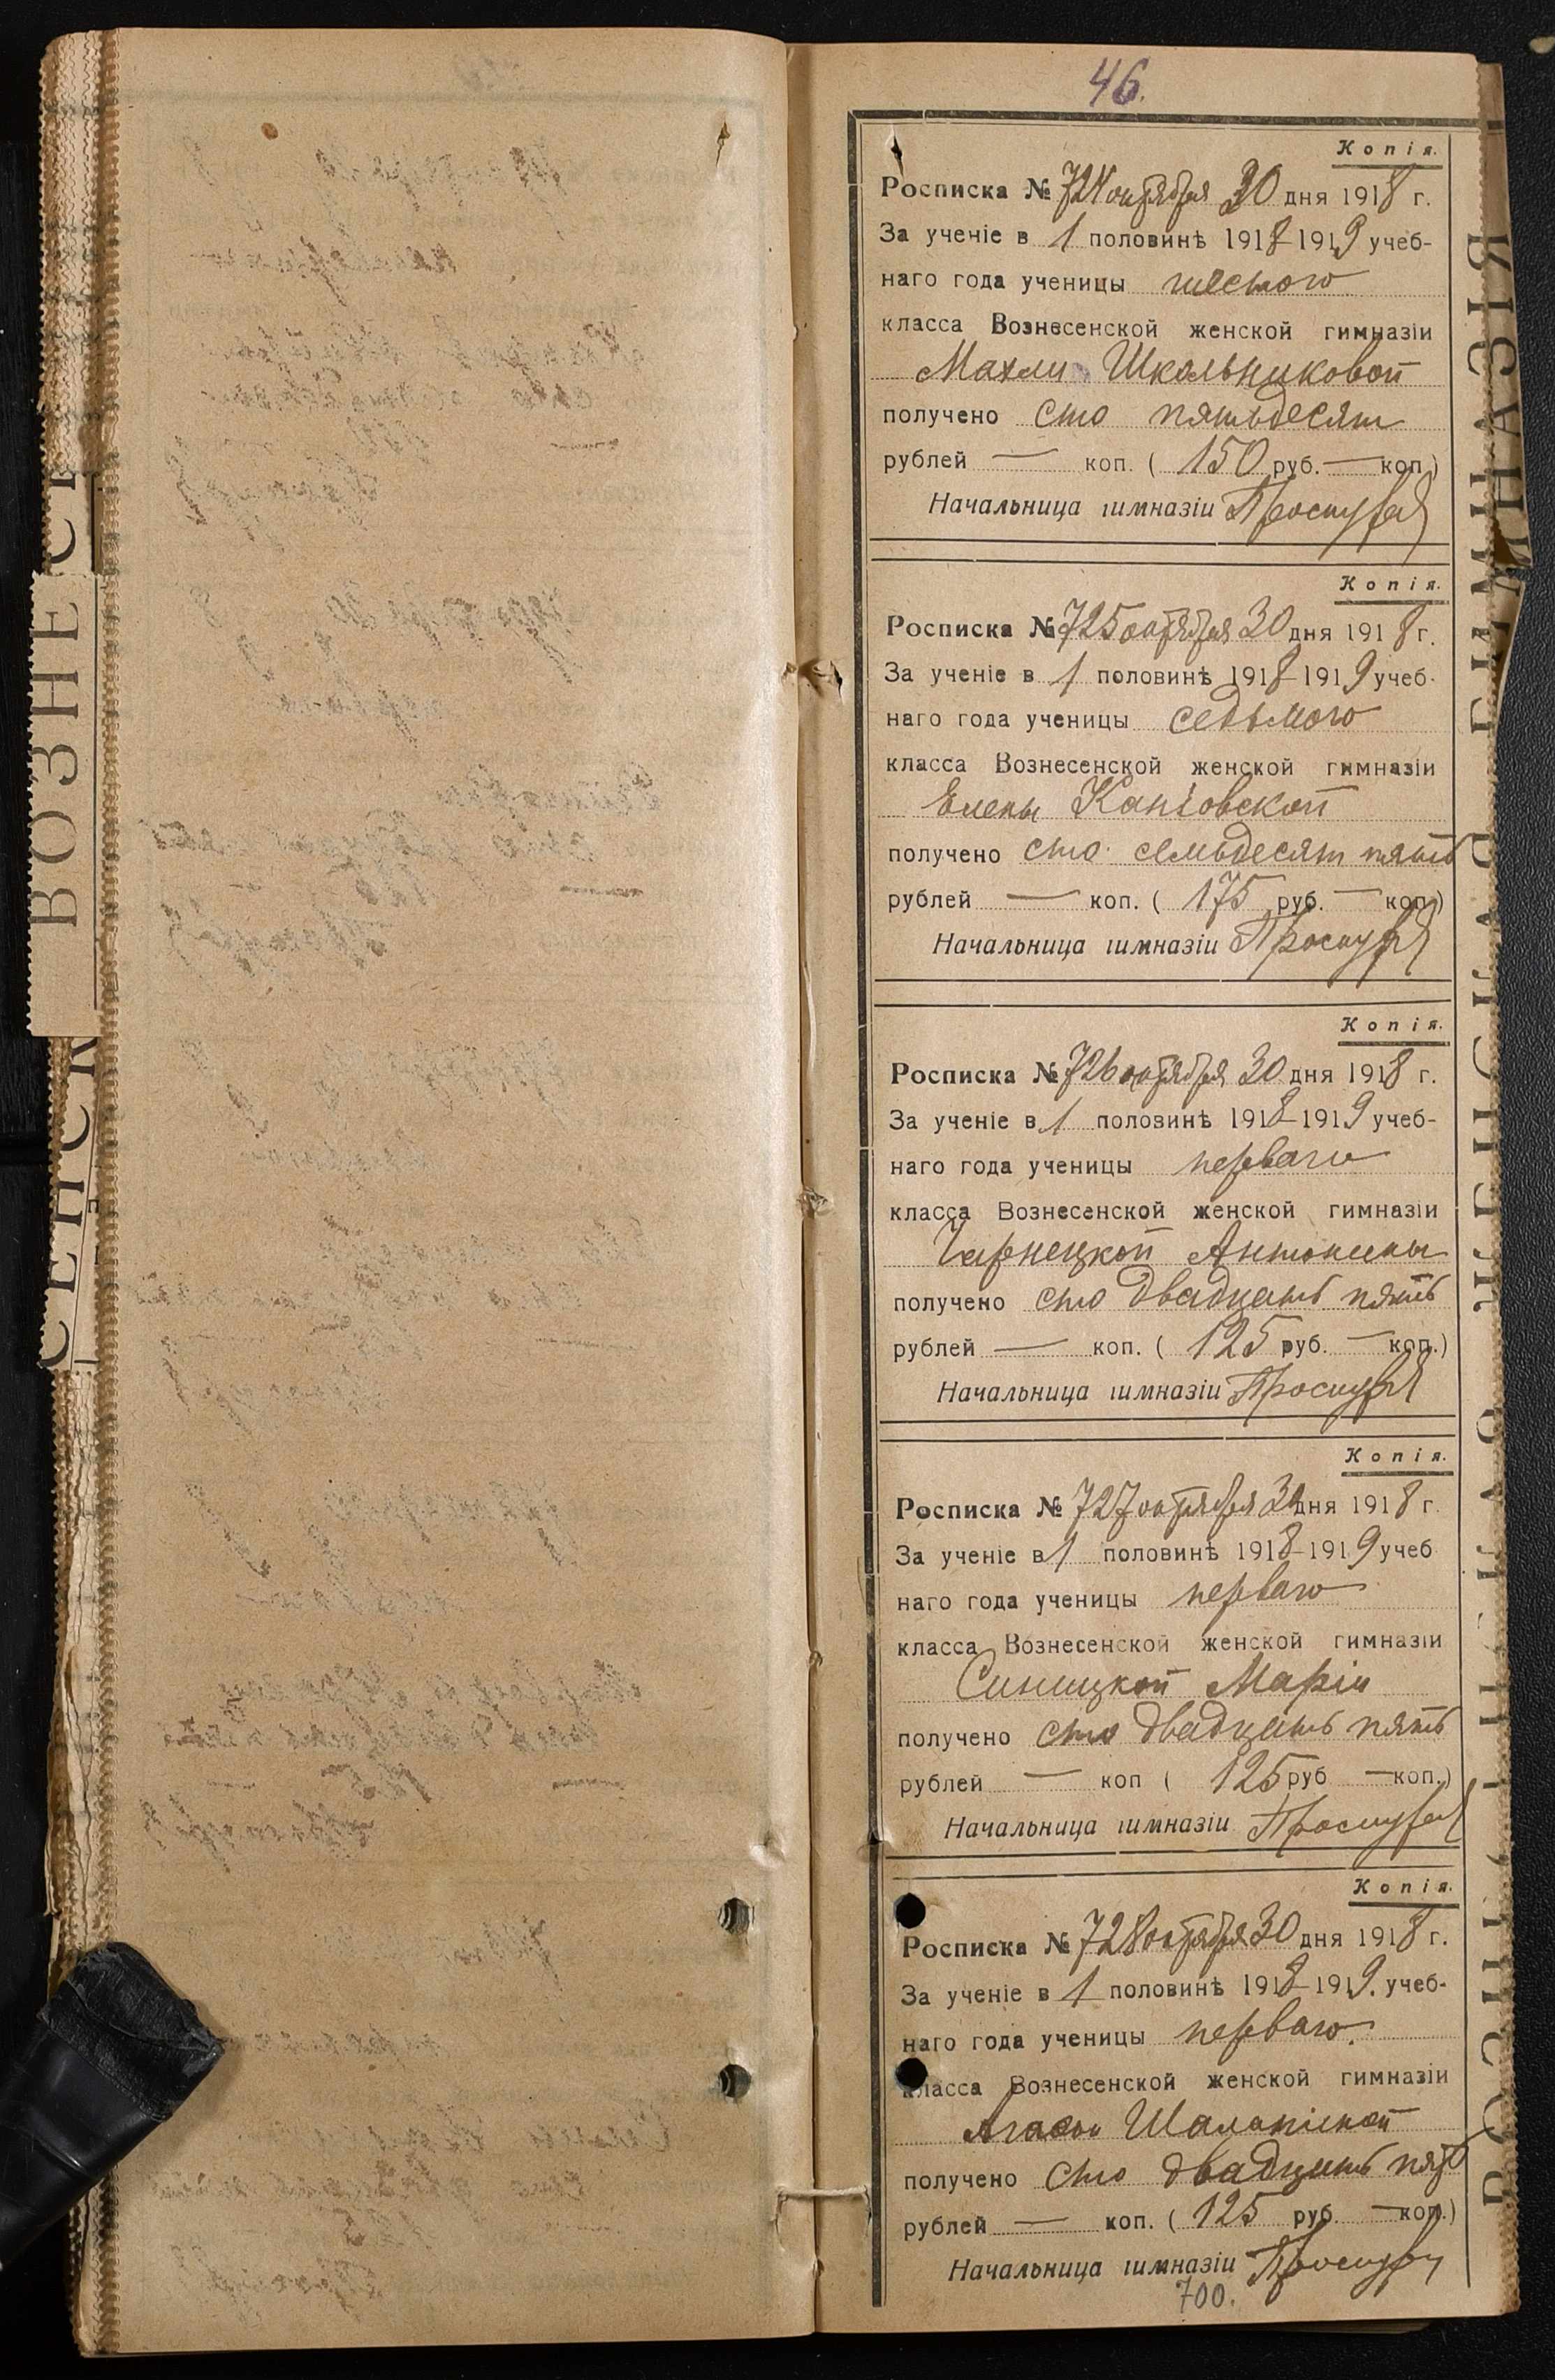 46.
Копія.
Росписка № 724 октября 30 дня 1918 г.
За ученіе в 1 половинѣ 1918-1919 учеб-
наго года ученицы шестого
класса Вознесенской женской гимназіи
Махли Школьниковой
получено сто пятьдесят
рублей — коп. ( 150 руб. — коп.)
Начальница гимназіи
Копія.
Росписка № 725 октября 30 дня 1918 г.
За ученіе в 1 половинѣ 1918-1919 учеб-
наго года ученицы седьмого
класса Вознесенской женской гимназіи
Елены
получено сто семьдесят пять
рублей — коп. ( 175 руб. — коп.)
Начальница гимназіи
Копія.
Росписка № 726 октября 30 дня 1918 г.
За ученіе в 1 половинѣ 1918-1919 учеб-
наго года ученицы перваго
класса Вознесенской женской гимназіи
Чарнецкой Антонины
получено сто двадцать пять
рублей — коп. ( 125 руб. — коп.)
Начальница гимназіи
Копія.
Росписка № 727 октября 30 дня 1918 г
За ученіе в 1 половинѣ 1918-1919 учеб
наго года ученицы перваго
класса Вознесенской женской гимназіи
Синицкой Маріи
получено сто двадцать пять
рублей — коп ( 125 руб — коп.)
Начальница гимназіи
Копія.
Росписка № 728 октября 30 дня 1918 г.
За ученіе в 1 половинѣ 1918-1919. учеб-
наго года ученицы перваго.
класса Вознесенской женской гимназіи
получено сто двадцать пять
рублей — коп. ( 125 руб — коп.)
Начальница гимназіи
700.
ВОЗНЕ
СЕНСК